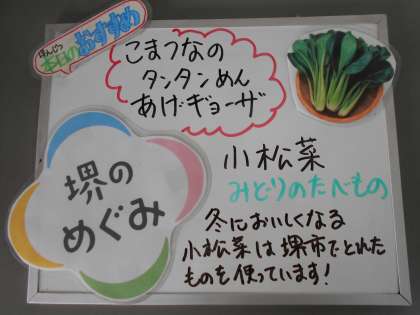 ほんじつ
本日のおすすめ
こまつなの
タンタンめん
あげギョーザ
堺の
めぐみ
小松菜
みどりのたべもの
冬においしくなる
小松菜は堺市でとれた
ものを使っています!